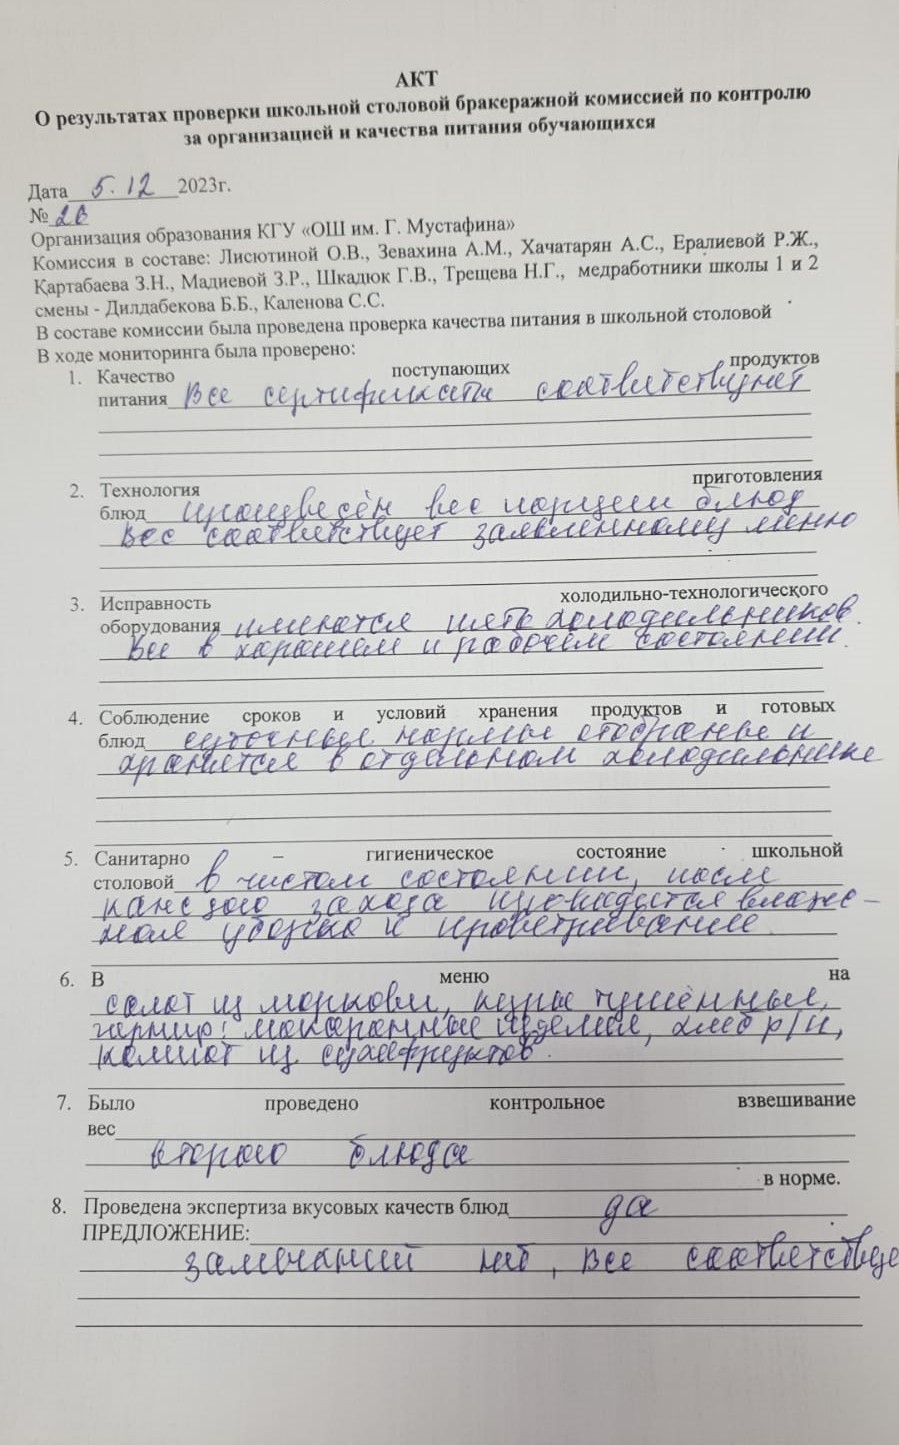 АКТ
О результатах проверки школьной столовой бракеражной комиссией по контролю
за организацией и качества питания обучающихся
Дата 5.12 2023г.
№ 20
Организация образования КГУ «ОШ им. Г. Мустафина»
Комиссия в составе: Лисютиной О.В., Зевахина А.М., Хачатарян А.С., Ералиевой Р.Ж.,
Картабаева З.Н., Мадиевой З.Р., Шкадюк Г.В., Трещева Н.Г., медработники школы 1 и 2
смены - Дилдабекова Б.Б., Каленова С.С.
В составе комиссии была проведена проверка качества питания в школьной столовой
В ходе мониторинга была проверено:
1. Качество поступающих продуктов
питания Все сертификаты соответствует
2. Технология приготовления
блюд произведён вес порции блюд
Вес соответствует заявленному меню
3. Исправность холодильно-технологического
оборудования имеются пять холодильников.
Все в хорошем и рабочем состоянии.
4. Соблюдение сроков и условий хранения продуктов и готовых
блюд суточные нормы отобраны и
хранятся в отдельном холодильнике
5. Санитарно – гигиеническое состояние школьной
столовой в чистом состоянии, после
каждого захода проводится влаж-
ная уборка и проветривание.
6. В меню на
салат из моркови, куры тушённые,
гарнир: макаронные изделия, хлеб р/п,
компот из сухофруктов.
7. Было проведено контрольное взвешивание
вес
второго блюда
в норме.
8. Проведена экспертиза вкусовых качеств блюд да
ПРЕДЛОЖЕНИЕ:
замечаний нет, все соответствуе